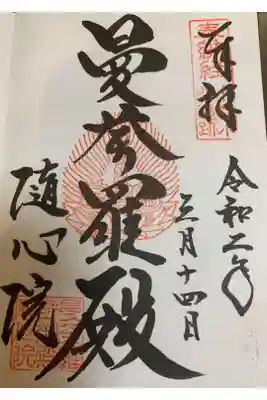 奉拝
令和二年
三月十四日
曼荼羅殿
随心院